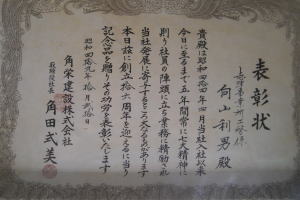 表彰状
向山利男殿
貴殿は昭和四拾四年四月当社入社以来
今日に至るまで五年間常に七大精神に
則り社員の陣頭に立ち業務に精励され
当社発展に寄与するところ大なるがあります
本日茲に創立拾六周年を迎えるに当り
記念品を贈りその功労を表彰いたします
昭和四拾九年 拾月弐拾日
角栄建設株式会社
取締役社長 角田式美